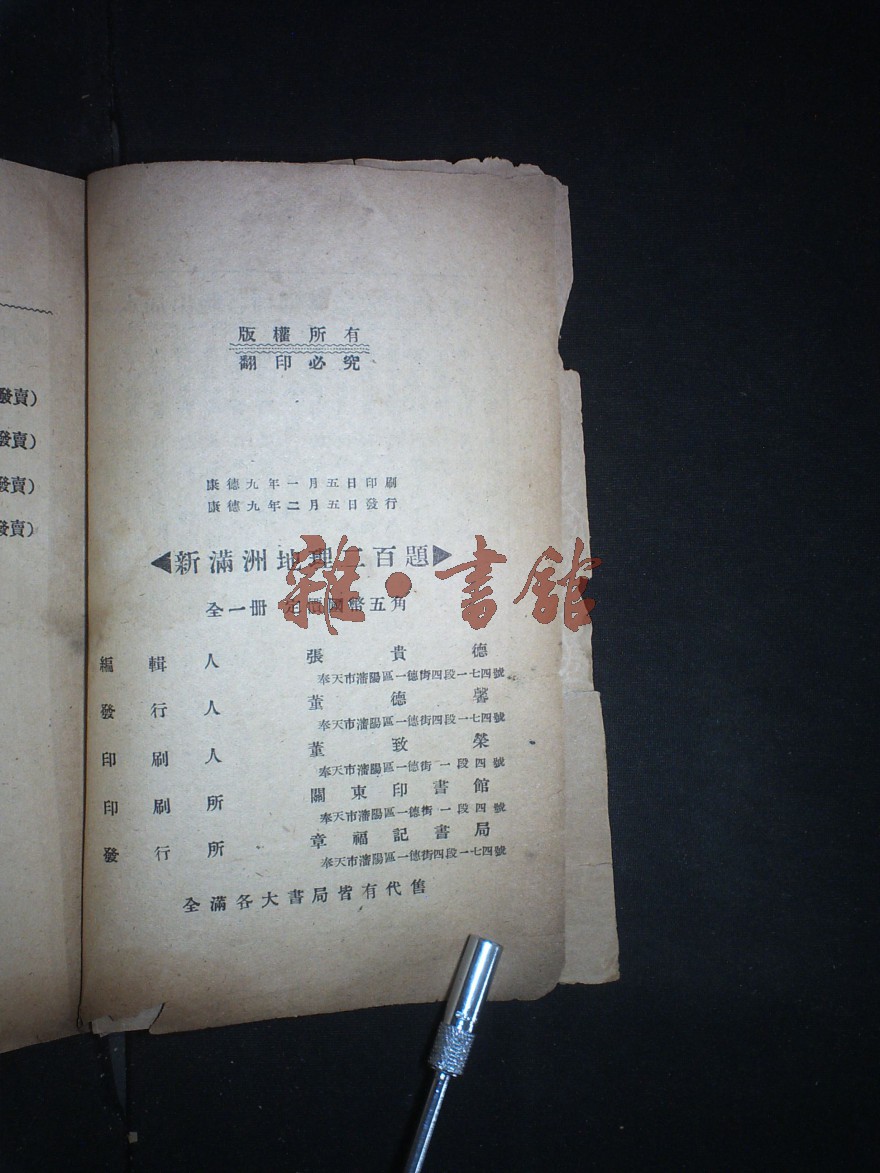 版權所有
翻印必究
康德九年一月五日印刷
康德九年二月五日發行
新滿洲地理二百題
全一册 定價國幣五角
編輯人 張貴德
奉天市瀋陽區一德街四段一七四號
發行人 董德馨
奉天市瀋陽區一德街四段一七四號
印刷人 董致榮
奉天市瀋陽區一德街一段四號
印刷所 關東印書館
奉天市瀋陽區一德街一段四號
發行所 章福記書局
奉天市瀋陽區一德街四段一七四號
全滿各大書局皆有代售
發賣)
發賣)
發賣)
發賣)
雜·書館